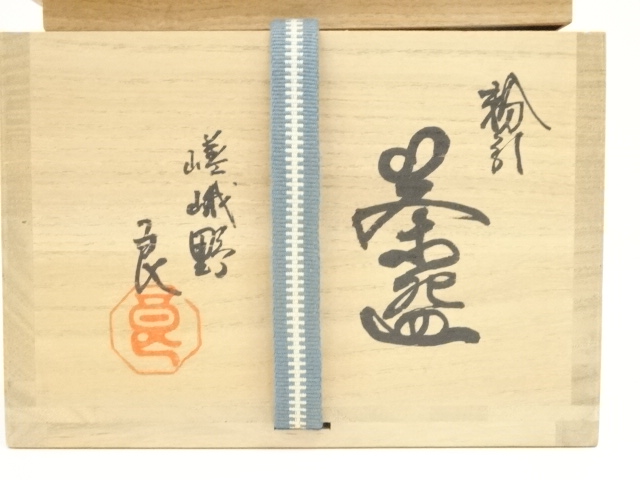 粉引
茶碗
嵯峨野
良
良